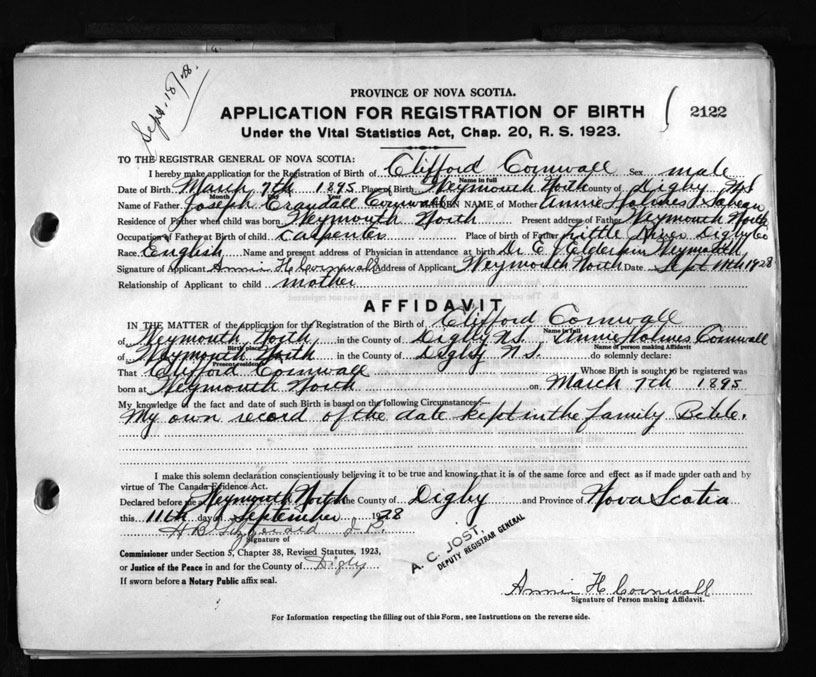 Sept. 18/28.
PROVINCE OF NOVA SCOTIA.
APPLICATION FOR REGISTRATION OF BIRTH ( 2122
Under the Vital Statistics Act, Chap. 20, R. S. 1923.
TO THE REGISTRAR GENERAL OF NOVA SCOTIA:
I hereby make application for the Registration of Birth of Clifford Cornwall Sex male
Name in full
Date of Birth March 7th 1895 Place of Birth Weymouth North County of Digby NS
Month
Name of Father Joseph Crandall Cornwall MAIDEN NAME of Mother Annie Holmes
Residence of Father when child was born Weymouth North Present address of Father Weymouth North
Occupation of Father at Birth of child Carpenter Place of birth of Father Little River Digby Co
Race English Name and present address of Physician in attendance at birth Dr E J Elderkin Weymouth
Signature of Applicant Annie H Cornwall Address of Applicant Weymouth North Date Sept 11th 1928
Relationship of Applicant to child mother
AFFIDAVIT
IN THE MATTER of the application for the Registration of the Birth of Clifford Cornwall
Name in full
of Weymouth North in the County of Digby N.S. I, Annie Holmes Cornwall
Birth place Name of person making Affidavit
of Weymouth North in the County of Digby N.S. do solemnly declare:
Present residence
That Clifford Cornwall Whose Birth is sought to be registered was
born at Weymouth North on March 7th 1895
My knowledge of the fact and date of such Birth is based on the following Circumstances:
My own record of the date kept in the family Bible.
I make this solemn declaration conscientiously believing it to be true and knowing that it is of the same force and effect as if made under oath and by
virtue of The Canada Evidence Act.
Declared before me at Weymouth North in the County of Digby and Province of Nova Scotia
this 11th day of September 1928
H B J. P.
Signature of
A. C. JOST.
DEPUTY REGISTRAR GENERAL
Commissioner under Section 5, Chapter 38, Revised Statutes, 1923,
or Justice of the Peace in and for the County of Digby
If sworn before a Notary Public affix seal.
Annie H Cornwall
Signature of Person making Affidavit.
For Information respecting the filling out of this Form, see Instructions on the reverse side.